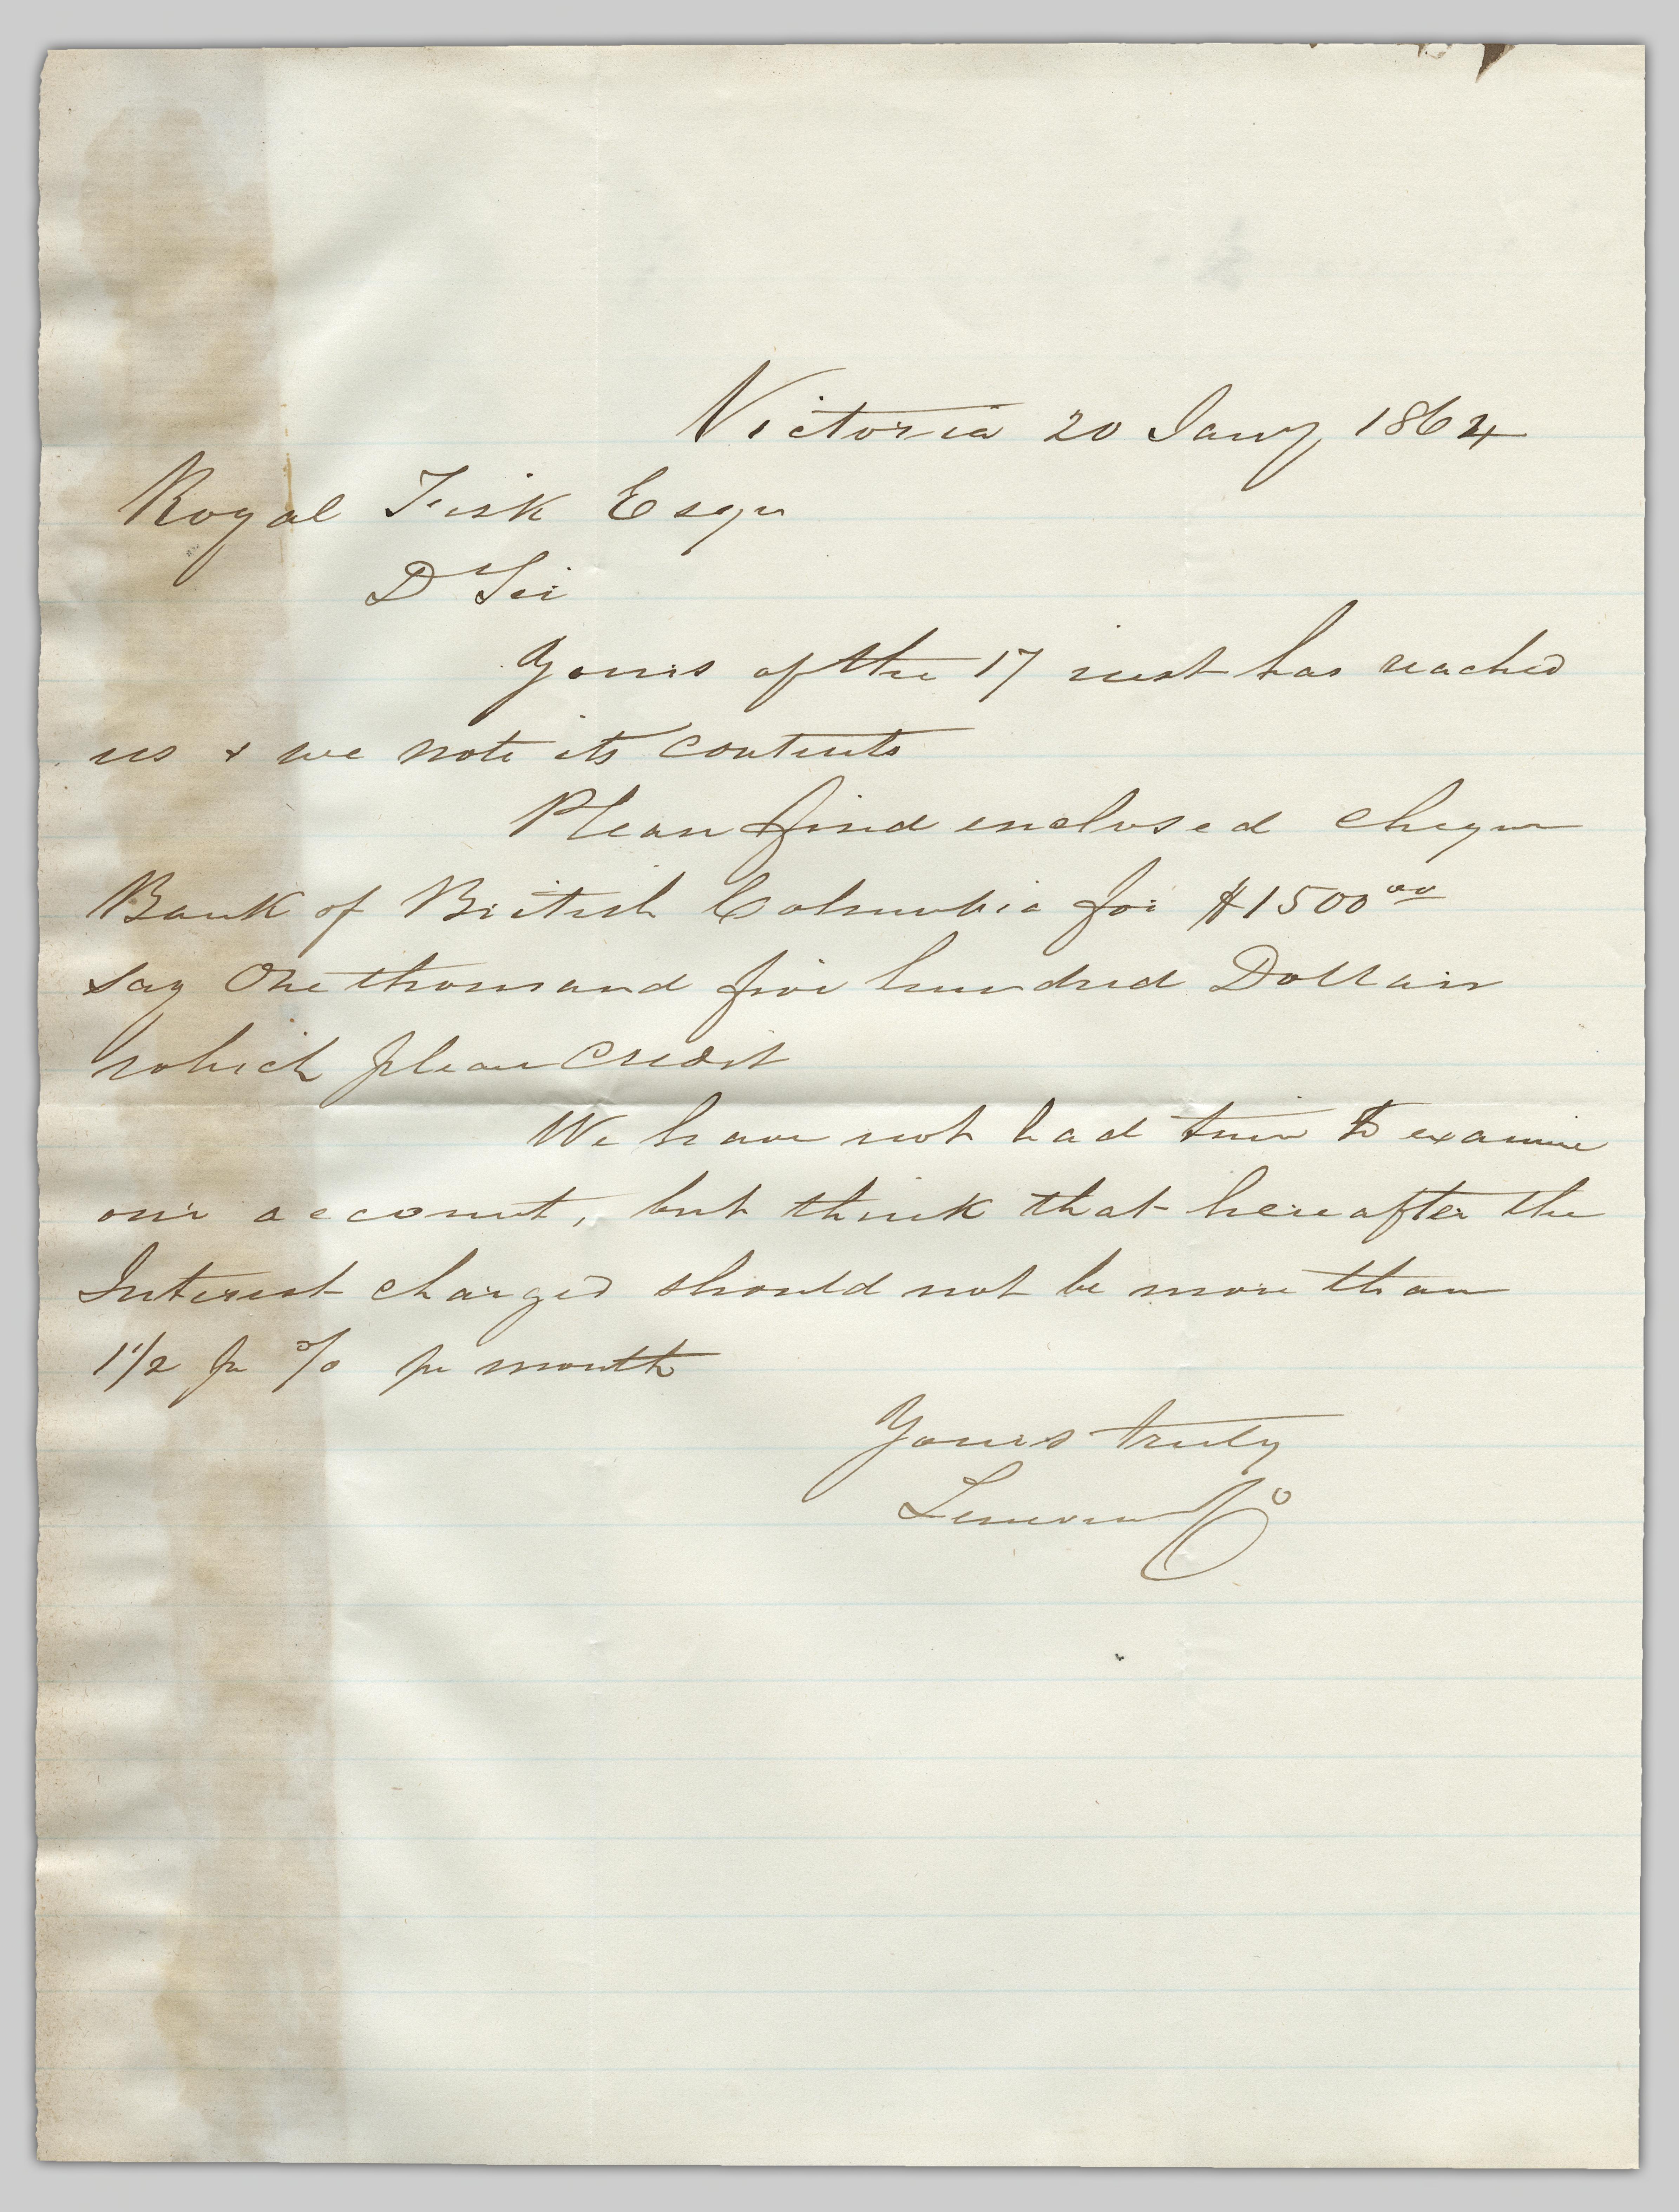 Victoria 20 Jany 1864
Royal Fisk Esqr
D Sir
Yours of the 17 inst has reached
us & we note its contents
Please find enclosed cheque
Bank of British Columbia for $1500 00
say One thousand five hundred Dollars
which please credit
We have not had time to examine
our account, but think that hereafter the
Interest charged should not be more than
1 1/2 pr % pr month
Yours truly
Co